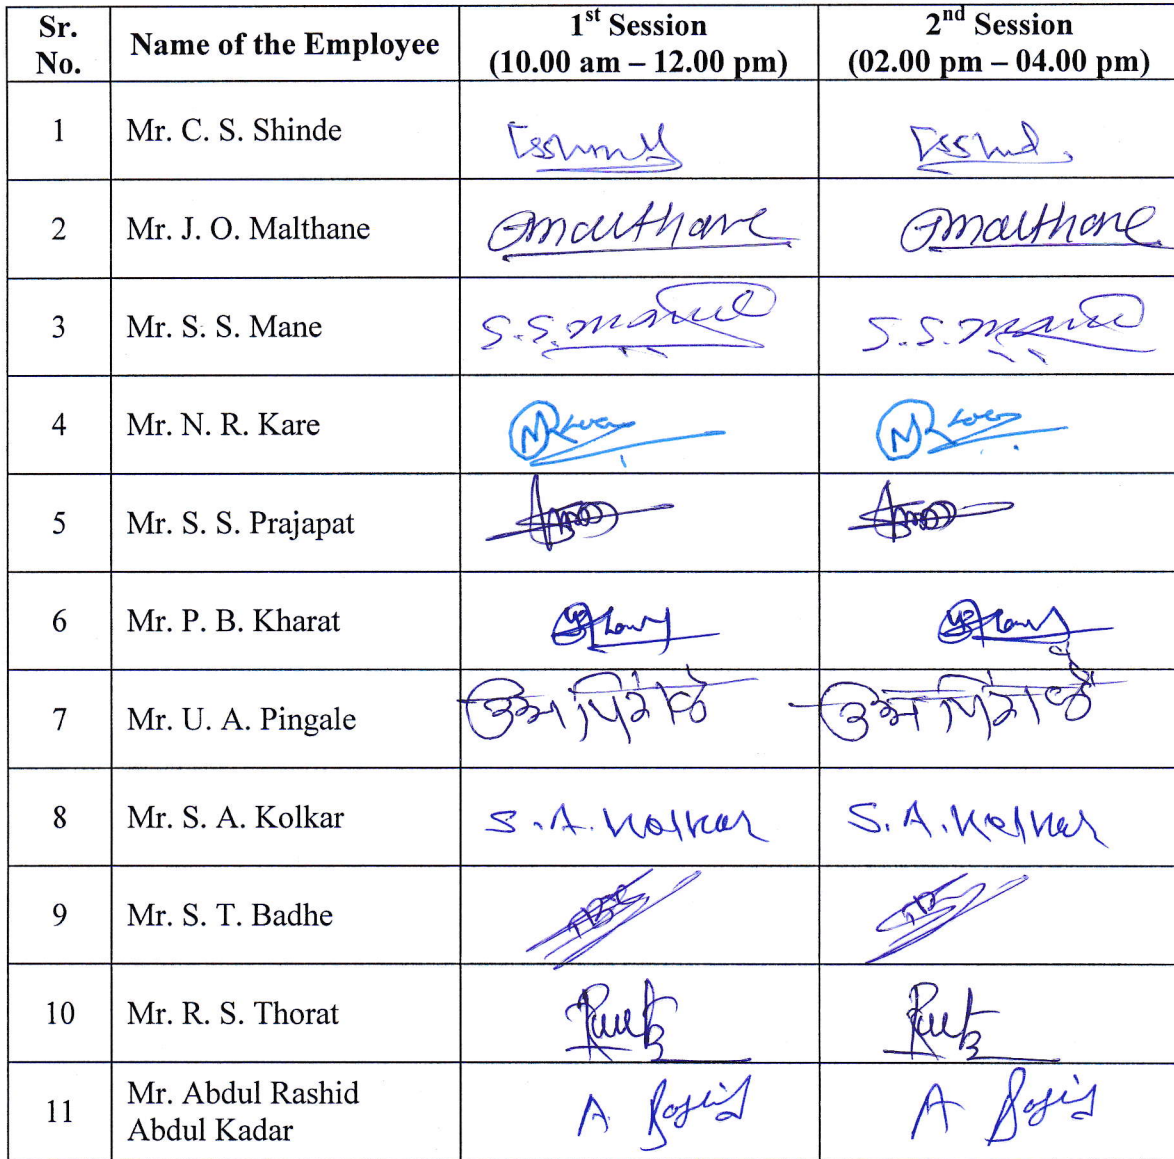 Sr. No. Name of the Employee 1st Session (10.00 am – 12.00 pm) 2nd Session (02.00 pm – 04.00 pm)
1 Mr. C. S. Shinde
2 Mr. J. O. Malthane Malthane Malthane
3 Mr. S. S. Mane S. S. Mane S. S. Mane
4 Mr. N. R. Kare
5 Mr. S. S. Prajapat
6 Mr. P. B. Kharat
7 Mr. U. A. Pingale
8 Mr. S. A. Kolkar S. A. Kolkar S. A. Kolkar
9 Mr. S. T. Badhe
10 Mr. R. S. Thorat
11 Mr. Abdul Rashid Abdul Kadar A A